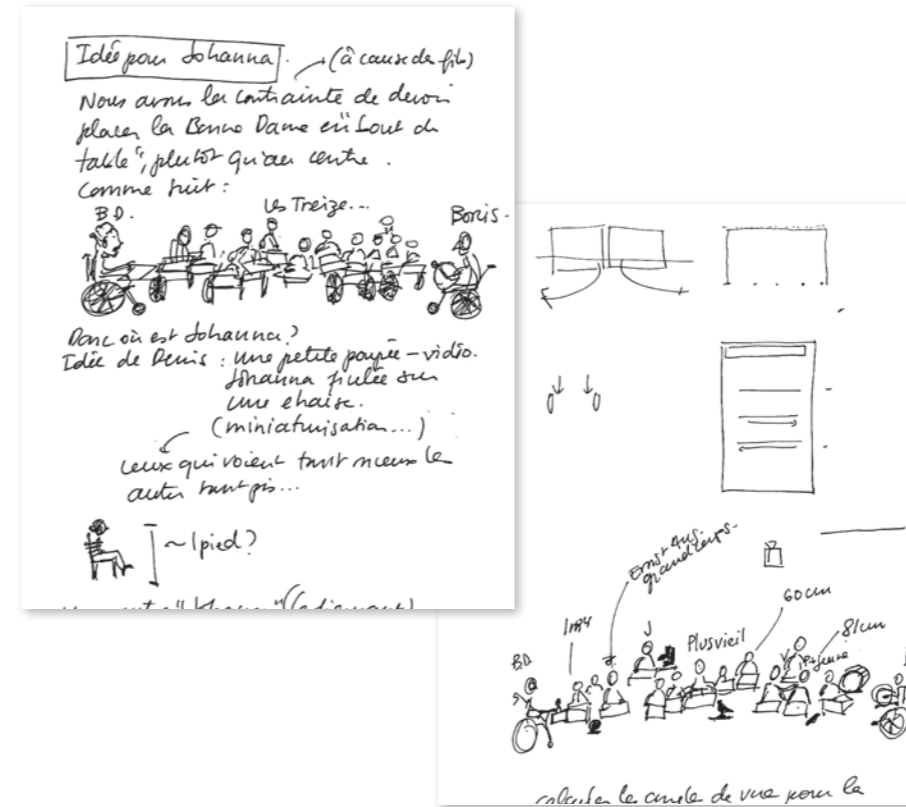 Idée pour Johanna.
(à cause du fil)
Nous avons la contrainte de devoir
placer la Bonne Dame en "bout de
table", plutôt qu'au centre.
Comme suit :
B.D.
Les Treize...
Boris.
Donc où est Johanna?
Idée de Denis : une petite poupée-vidéo.
Johanna ficelée sur
une chaise.
(miniaturisation...)
ceux qui voient tant mieux les
autres tant pis...
~1 pied?
"Johanna"
Ernst Aug.
grand temps.
60 cm
1m94
J
Plusvieil
81cm
B.D.
P+jeune
calculer les angles de vue pour la